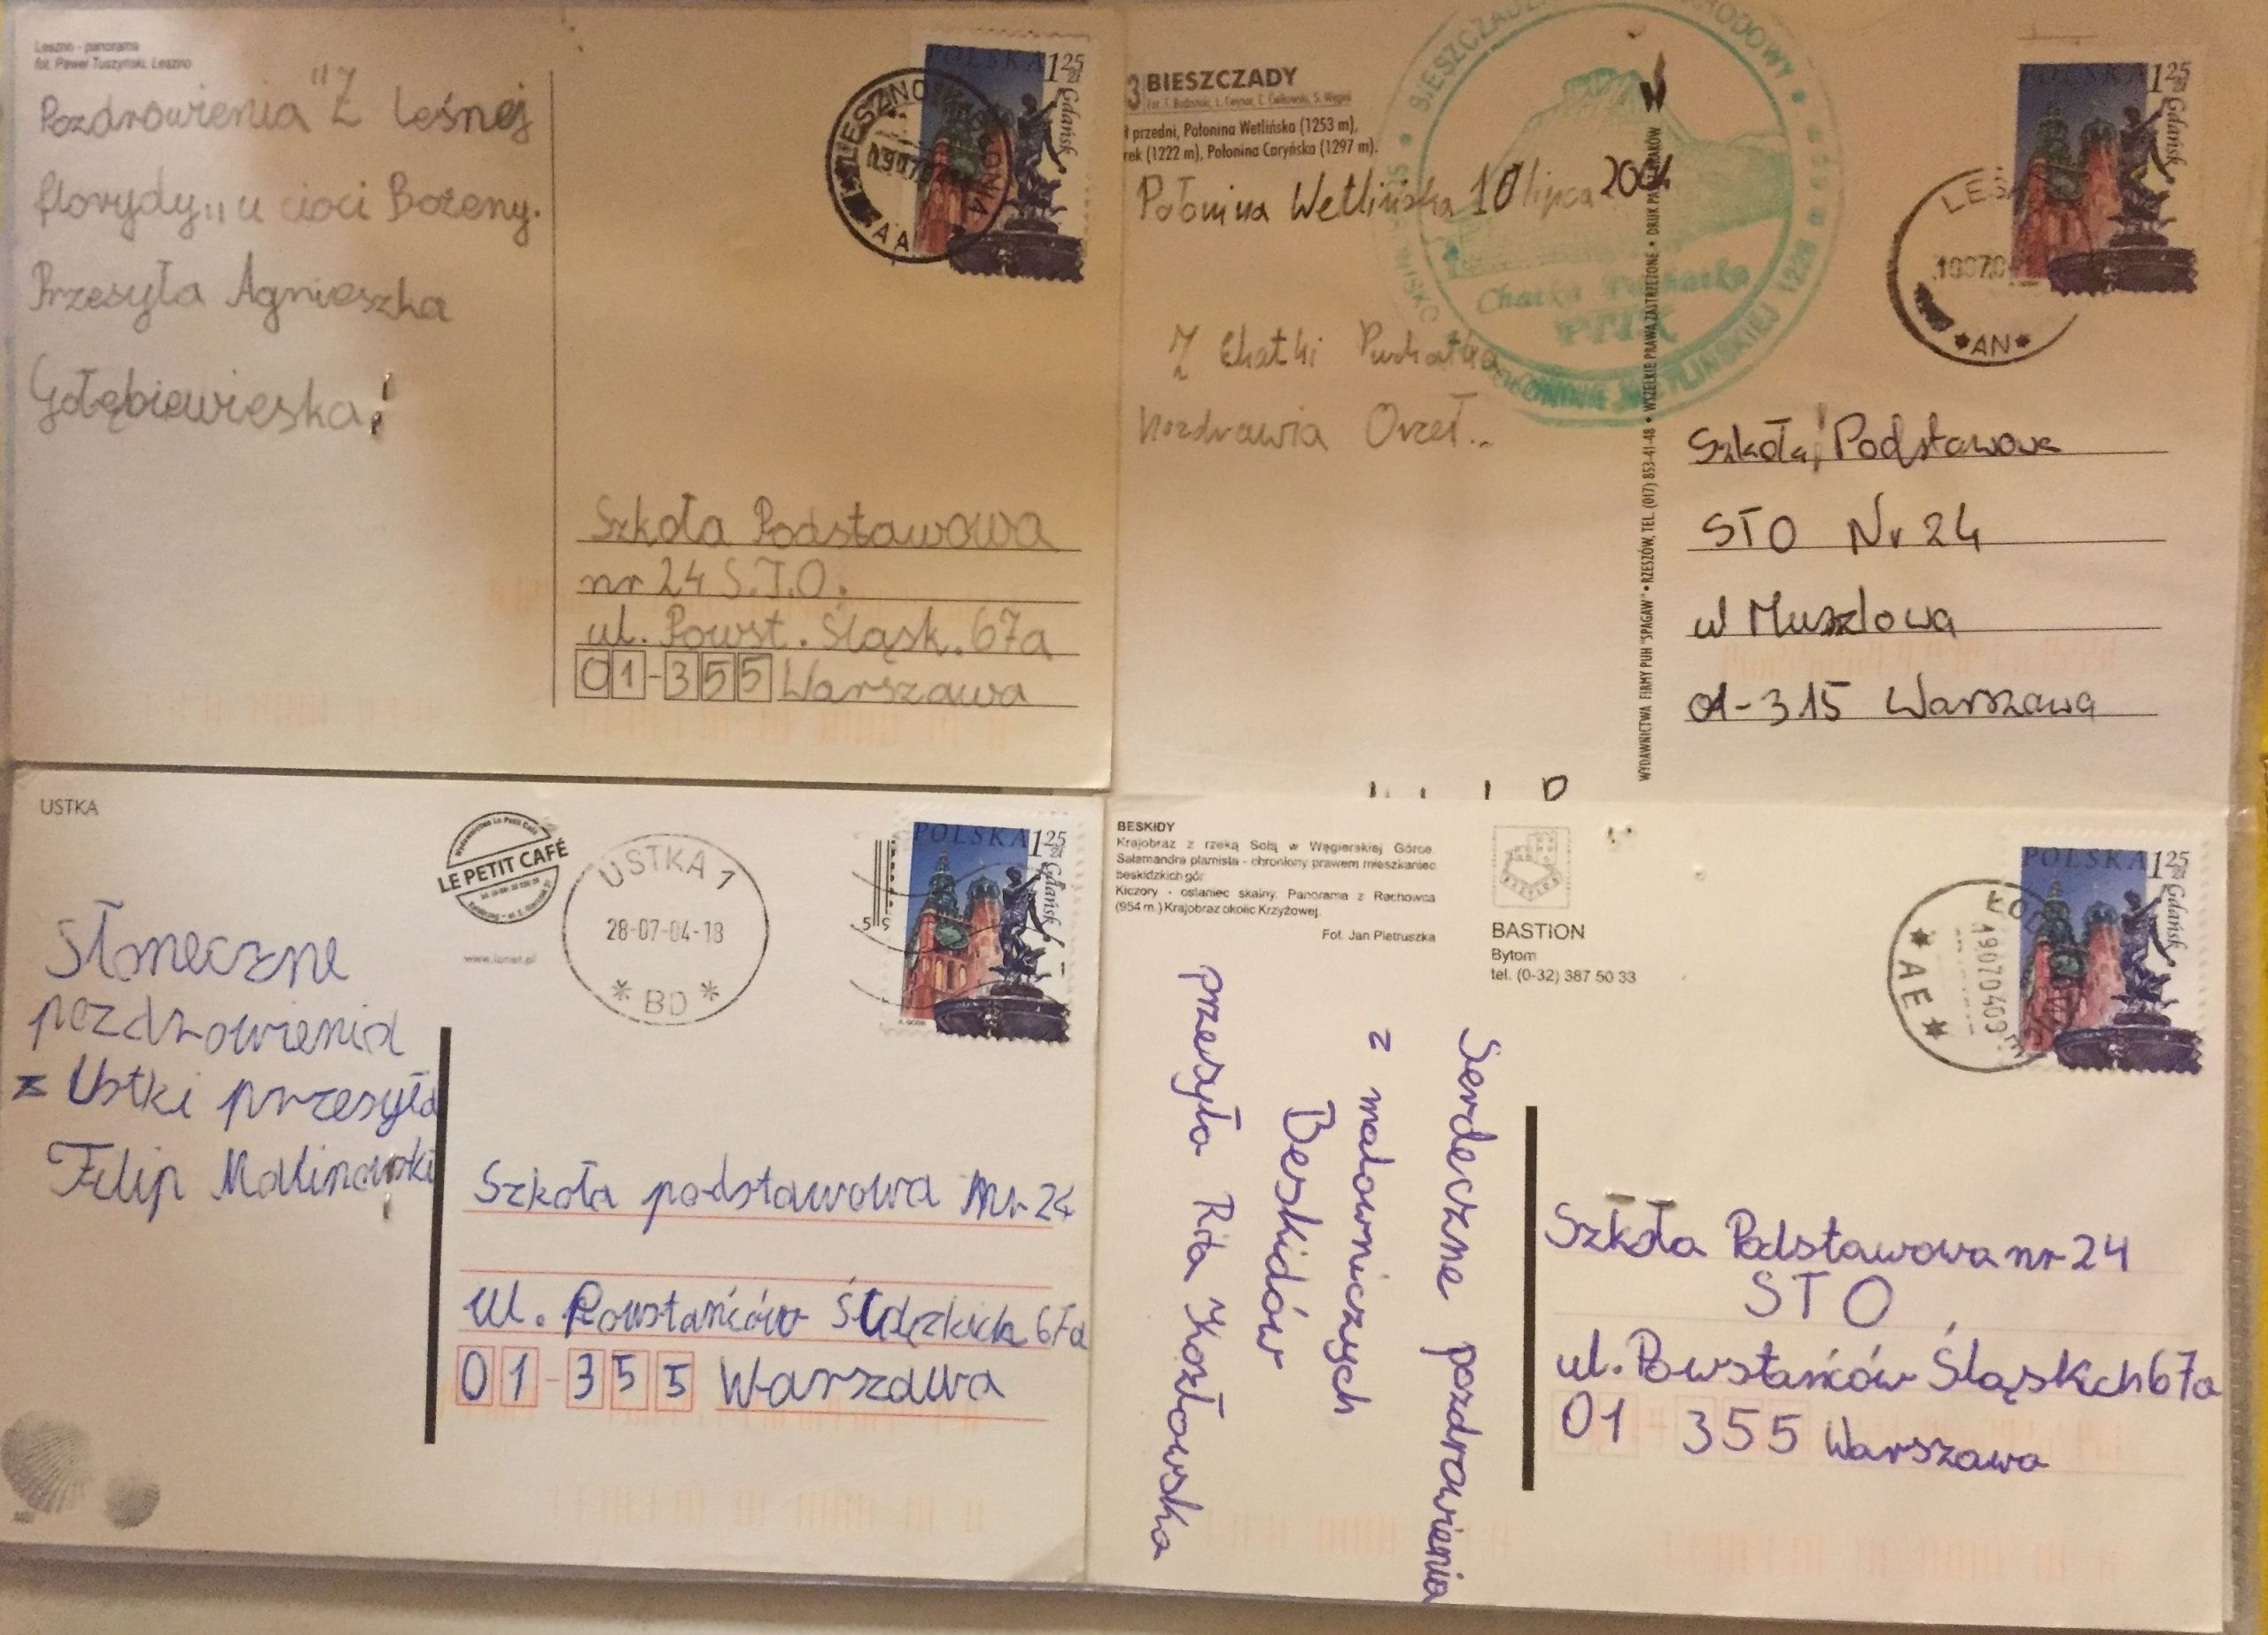 Leszno - panorama
fot. Paweł Tuszyński, Leszno
Pozdrowienia "Z leśnej
florydy,, u cioci Bożeny.
Przesyła Agnieszka
Gołębiewieska
POLSKA 1 25 zł
Gdańsk
LESZNO
AA
Szkoła Podstawowa
nr 24 S.T.O.
ul. Powst. Śląsk. 67a
01-355 Warszawa
3 BIESZCZADY
przedni, Połonina Wetlińska (1253 m),
rek (1222 m), Połonina Caryńska (1297 m).
Połonina Wetlińska 10 lipca 2004
Z Chatki Puchatka
pozdrawia Orzeł..
Chatka Puchatka
PTTK
WYDAWNICTWA FIRMY PUH "SPAGAW" • RZESZÓW, TEL. (017) 853-41-48 • WSZELKIE PRAWA ZASTRZEŻONE • DRUK KRAKÓW
POLSKA 1 25 zł
Gdańsk
*AN*
Szkoła Podstawowa
STO Nr 24
w Muszlowa
01-315 Warszawa
USTKA
LE PETIT CAFÉ
USTKA 1
28-07-04-18
* BD *
POLSKA 1 25 zł
Gdańsk
Słoneczne
pozdrowienia
z Ustki przesyła
Filip Malinowski
Szkoła podstawowa Nr 24
ul. Powstańców Śląskich 67a
01-355 Warszawa
BESKIDY
Krajobraz z rzeką Sołą w Węgierskiej Górce.
Salamandra plamista - chroniony prawem mieszkaniec
beskidzkich gór
Kiczory - ostaniec skalny. Panorama z Rachowca
(954 m.) Krajobraz okolic Krzyżowej.
Fot. Jan Pietruszka
BASTION
Bytom
tel. (0-32) 387 50 33
POLSKA 1 25 zł
Gdańsk
* AE *
19070409
Serdeczne pozdrowienia
z malowniczych
Beskidów
przesyła Rita Kozłowska
Szkoła Podstawowa nr 24
STO
ul. Powstańców Śląskch 67a
01 355 Warszawa